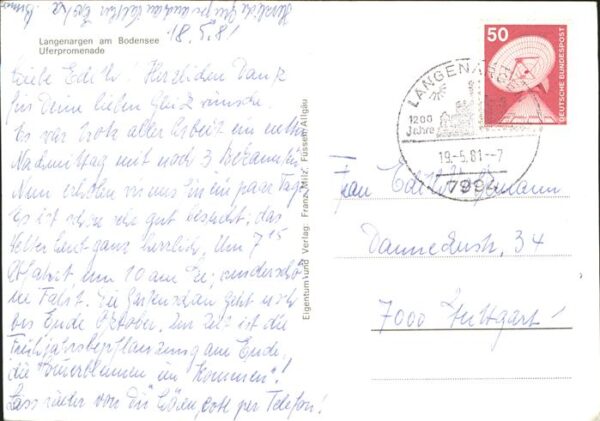 Herzliche
18.5.81
Langenargen am Bodensee
Uferpromenade
Liebe Edith! Herzlichen Dank
für Deine lieben Glückwünsche.
Es war trotz aller Arbeit ein netter
Nachmittag mit noch 3 Bekannten.
Nun erholen wir uns ein paar Tage
Es ist schon sehr gut besucht, das
Wetter heut ganz herrlich, Um 7 15
Abfahrt, um 10 am See, wunderschö
ne Fahrt. Die Gartenschau geht noch
bis Ende Oktober. Zur Zeit ist die
Frühjahrsbepflanzung am Ende,
die "Sommerblumen im Kommen"!
Lass wieder von Dir hören, per Telefon!
Eigentum und Verlag: Franz Milz, Füssen/Allgäu
50
DEUTSCHE BUNDESPOST
LANGENARGEN
1200
Jahre
19.-5.81.-7
7994
Frau Edith
34
7000 Stuttgart 1